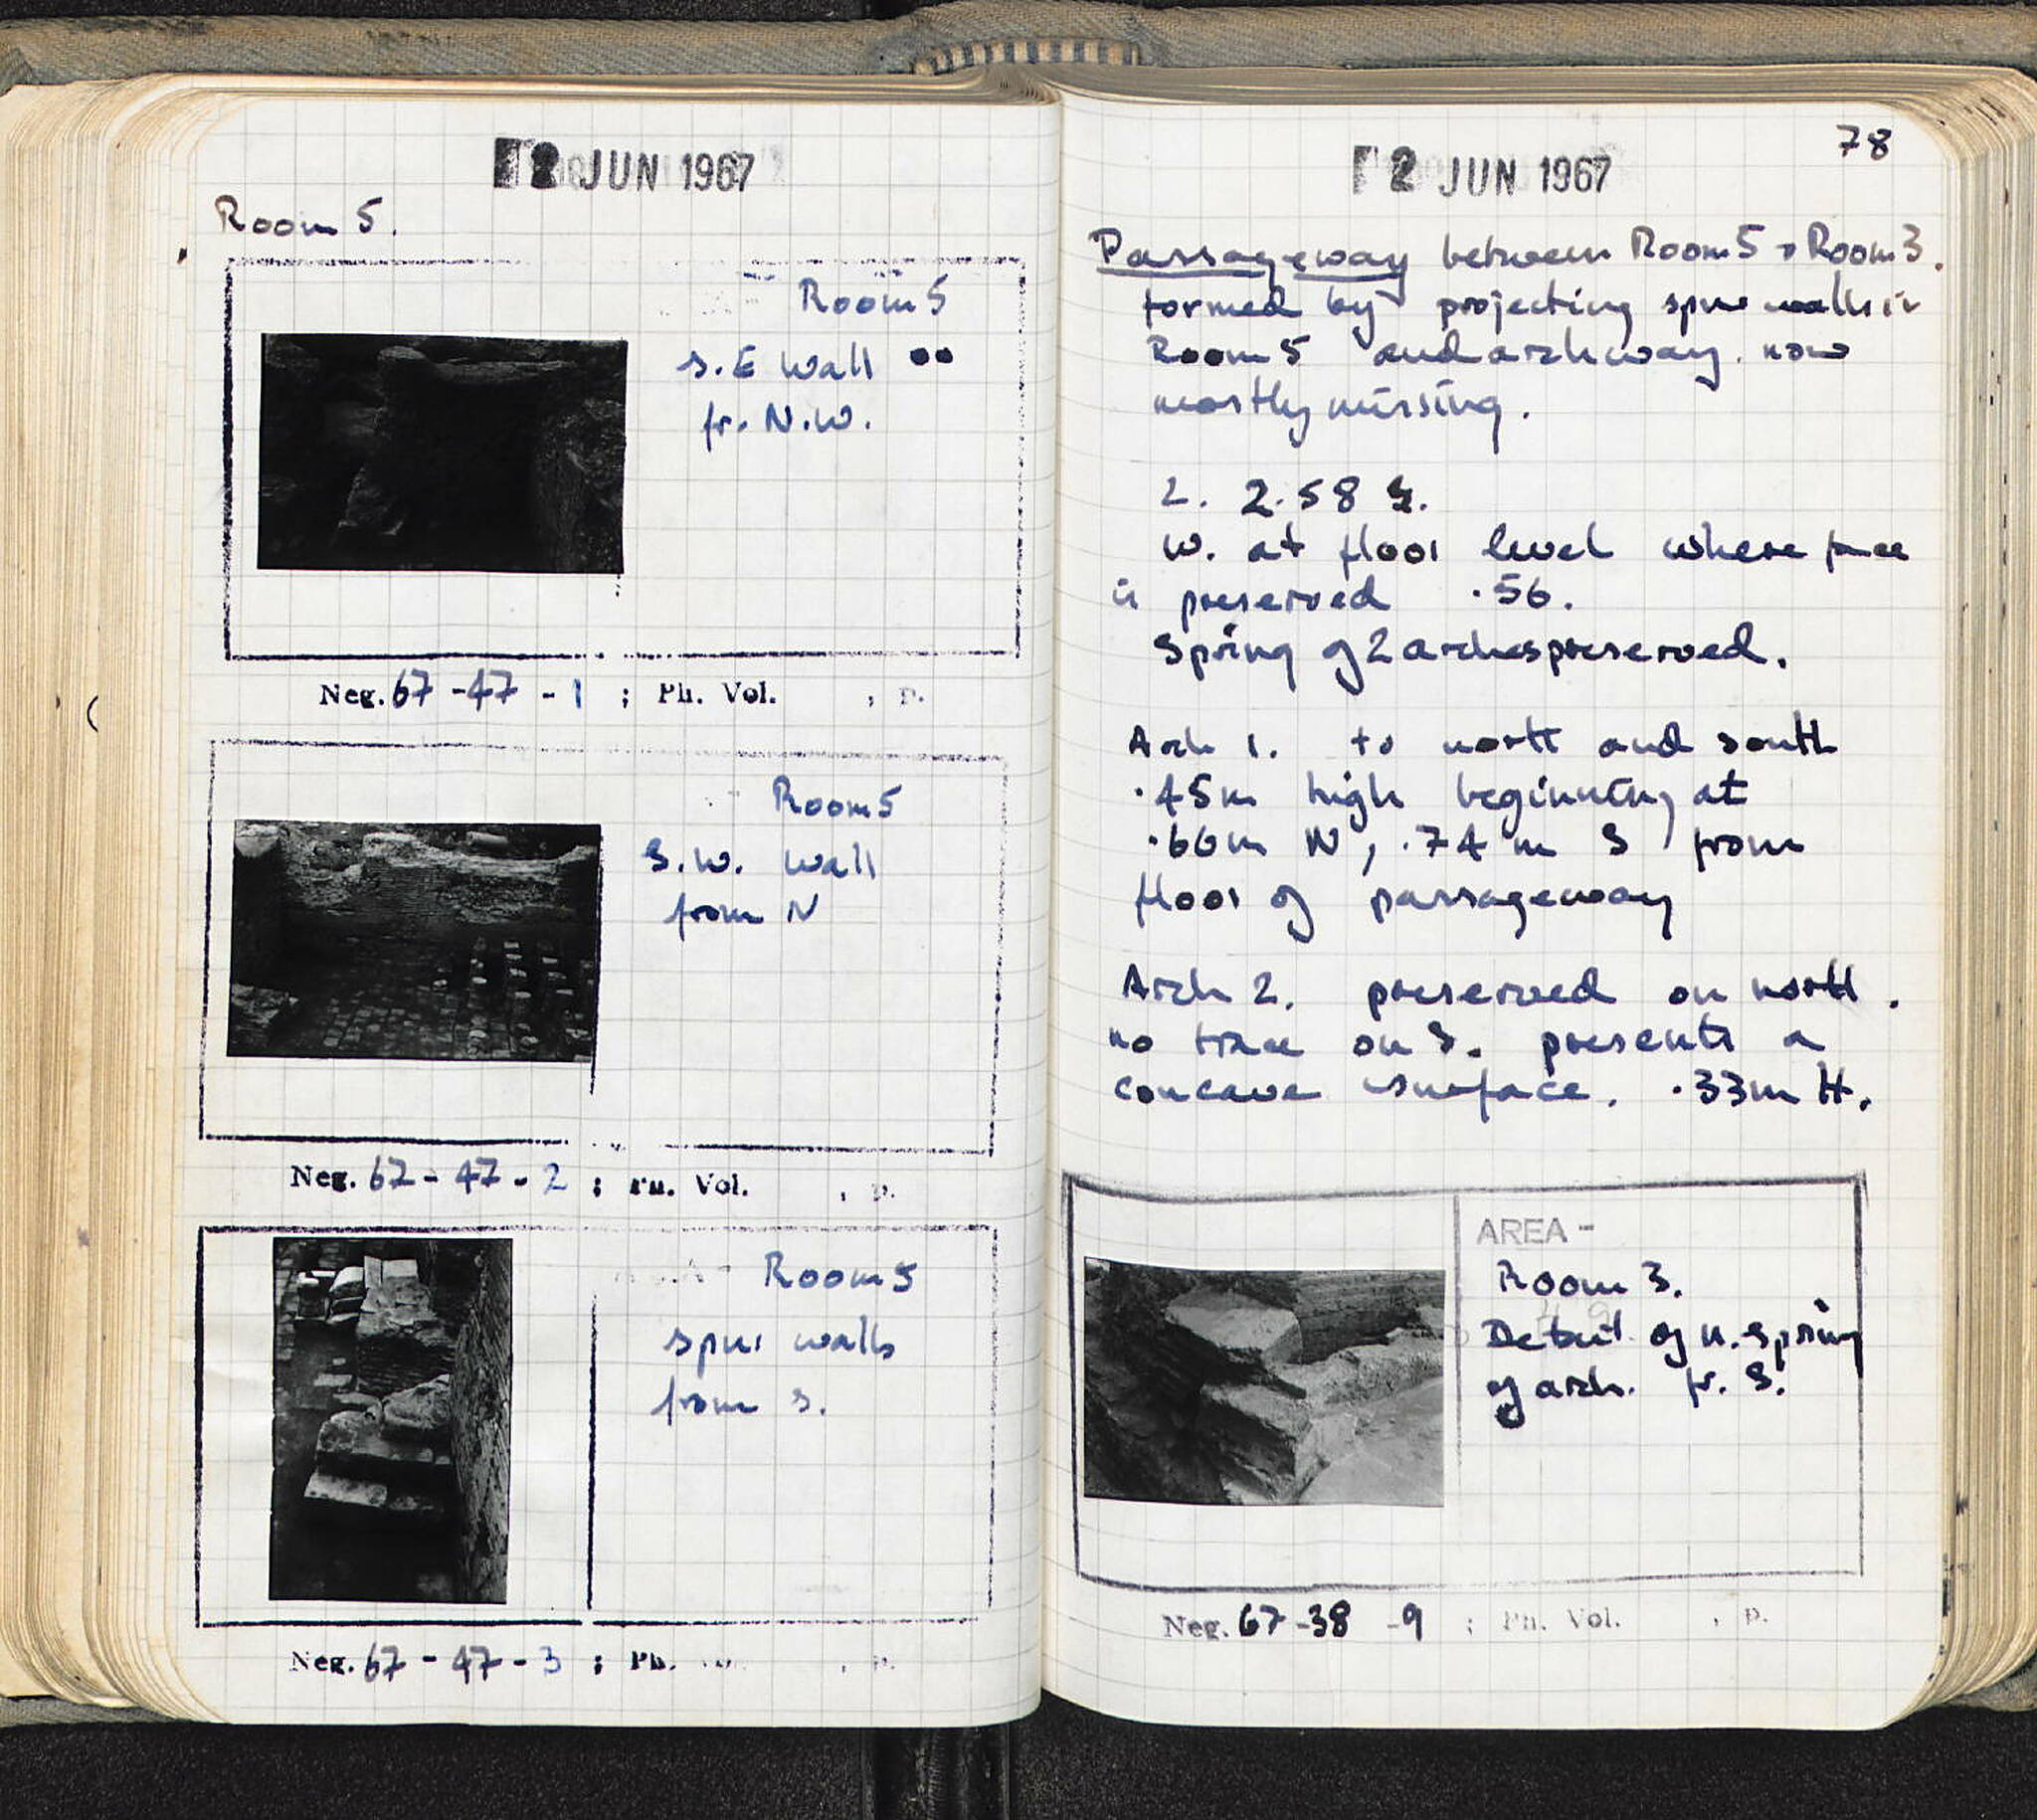 2 JUN 1967
Room 5.
Room 5
S.E Wall
fr. N.W.
Neg. 67-47-1 ; Ph. Vol. , p.
Room 5
S.W. wall
from N
Neg. 67-47-2 ; Ph. Vol. , p.
Room 5
spur walls
from S.
Neg. 67-47-3 ; Ph. , p.
78
2 JUN 1967
Passageway between Room 5 + Room 3.
formed by projecting spur walls in
Room 5 and archway. now
mostly missing.
L. 2.58
W. at floor level where face
is preserved .56.
Spring of 2 arches preserved.
Arch 1. to north and south
.45m high beginning at
.66m N, .74m S from
floor of passageway
Arch 2. preserved on north.
no trace on S. presents a
concave surface. .33m H.
AREA -
Room 3.
Detail of N. Spring
of arch. fr. S.
Neg. 67-38-9 ; Ph. Vol. , p.